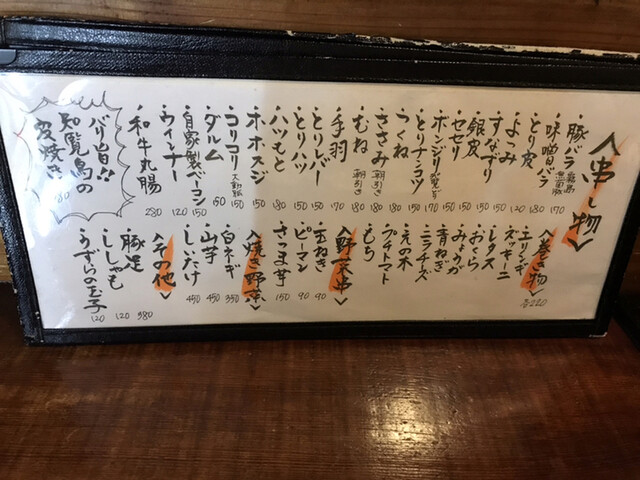 〈串し物〉
豚バラ 霧島黒豚 170
味噌バラ 180
とり皮 120
よつみ 150
すなずり 150
銀皮 150
セセリ 150
ボンジリ 150
とりナンコツ 180
つくね 180
ささみ 朝引き 180
むね 朝引き 180
手羽 170
とりレバー 150
とりハツ 150
ハツもと 180
ホホスジ 150
コリコリ 大動脈 150
ダルム 150
自家製ベーコン 150
ウインナー 120
和牛丸腸 280
バリ旨!!
知覧鳥の
皮焼き
〈巻き物〉
各220
エリンギ
ズッキーニ
レタス
おくら
みょうが
青ねぎ
ニラチーズ
えの木
プチトマト
もち
〈野菜串〉
玉ねぎ 90
ピーマン 90
さつま芋 150
〈焼き野菜〉
白ネギ 350
山芋 450
しいたけ 450
〈その他〉
豚足 380
ししゃも 120
うずらの玉子 120